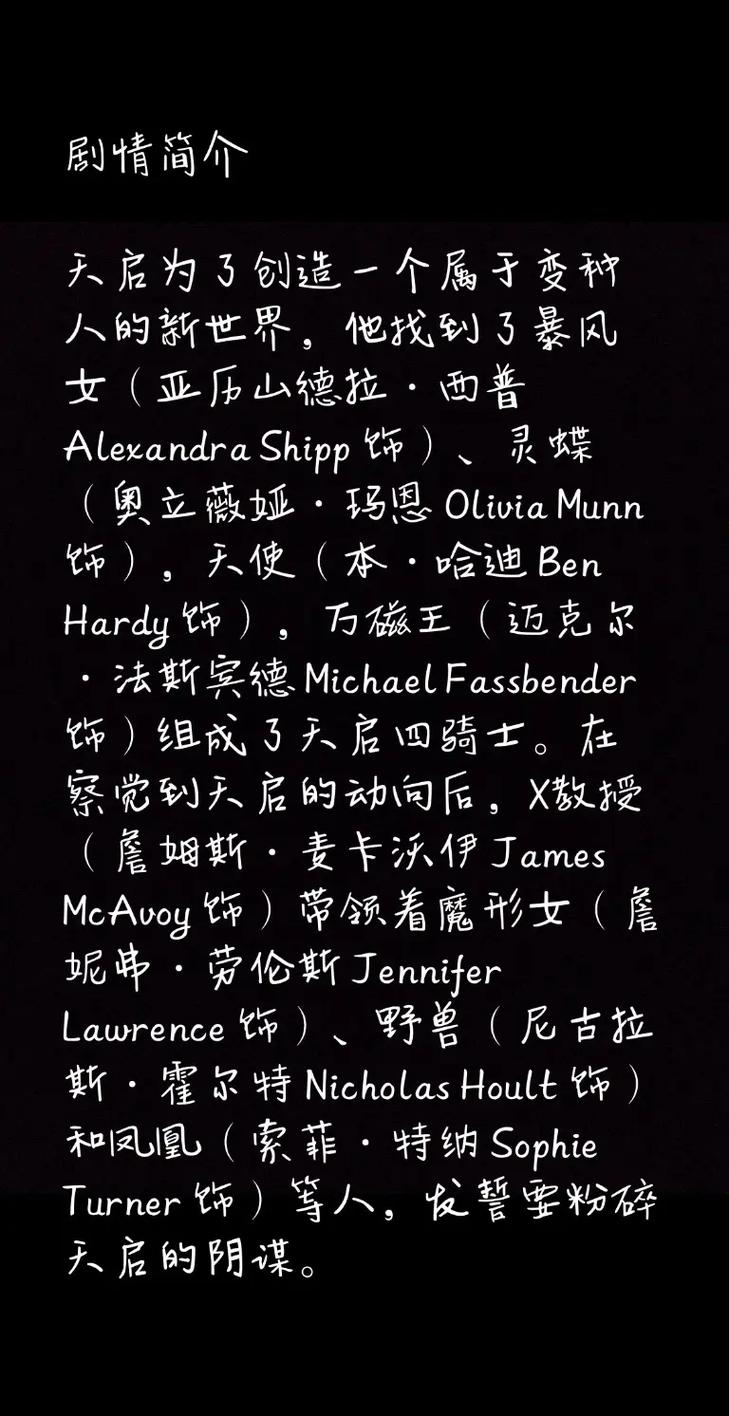 剧情简介
天启为了创造一个属于变种
人的新世界，他找到了暴风
女（亚历山德拉·西普
Alexandra Shipp 饰）、灵蝶
（奥立薇娅·玛恩 Olivia Munn
饰），天使（本·哈迪 Ben
Hardy 饰），万磁王（迈克尔
·法斯宾德 Michael Fassbender
饰）组成了天启四骑士。在
察觉到天启的动向后，X教授
（詹姆斯·麦卡沃伊 James
McAvoy 饰）带领着魔形女（詹
妮弗·劳伦斯 Jennifer
Lawrence 饰）、野兽（尼古拉
斯·霍尔特 Nicholas Hoult 饰）
和凤凰（索菲·特纳 Sophie
Turner 饰）等人，发誓要粉碎
天启的阴谋。